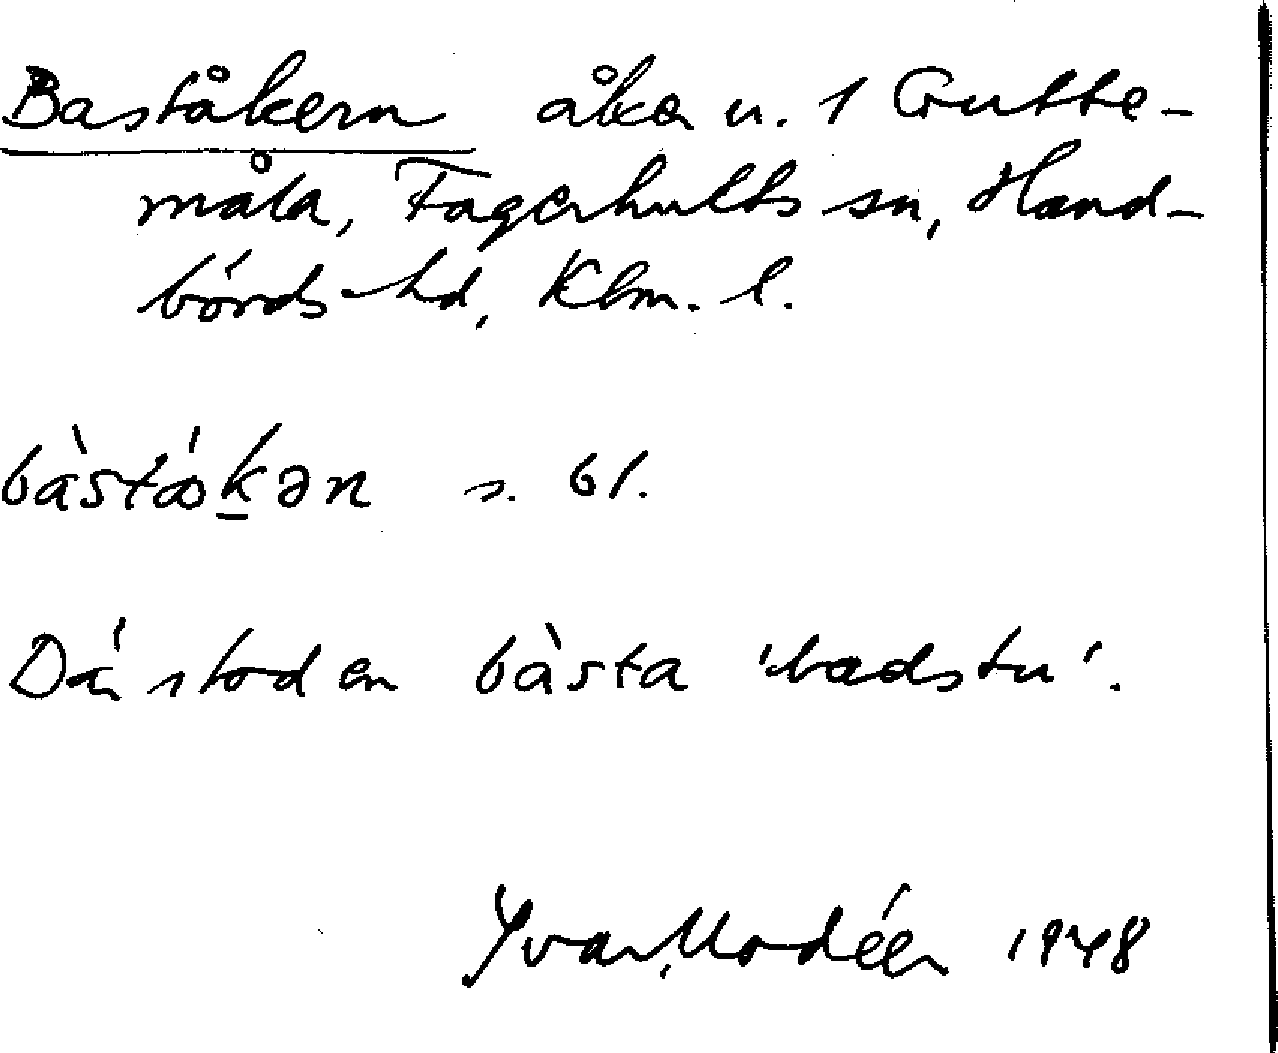 Baståkern åker u. 1 Gutte-
måla, Fagerhults sn, Hand-
börds hd, Klm. l.
bàstá̊kən s. bf.
Där stod en bàsta 'badstu'.
Yvar Modéer 1948